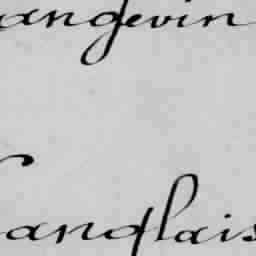 angevin
anglais